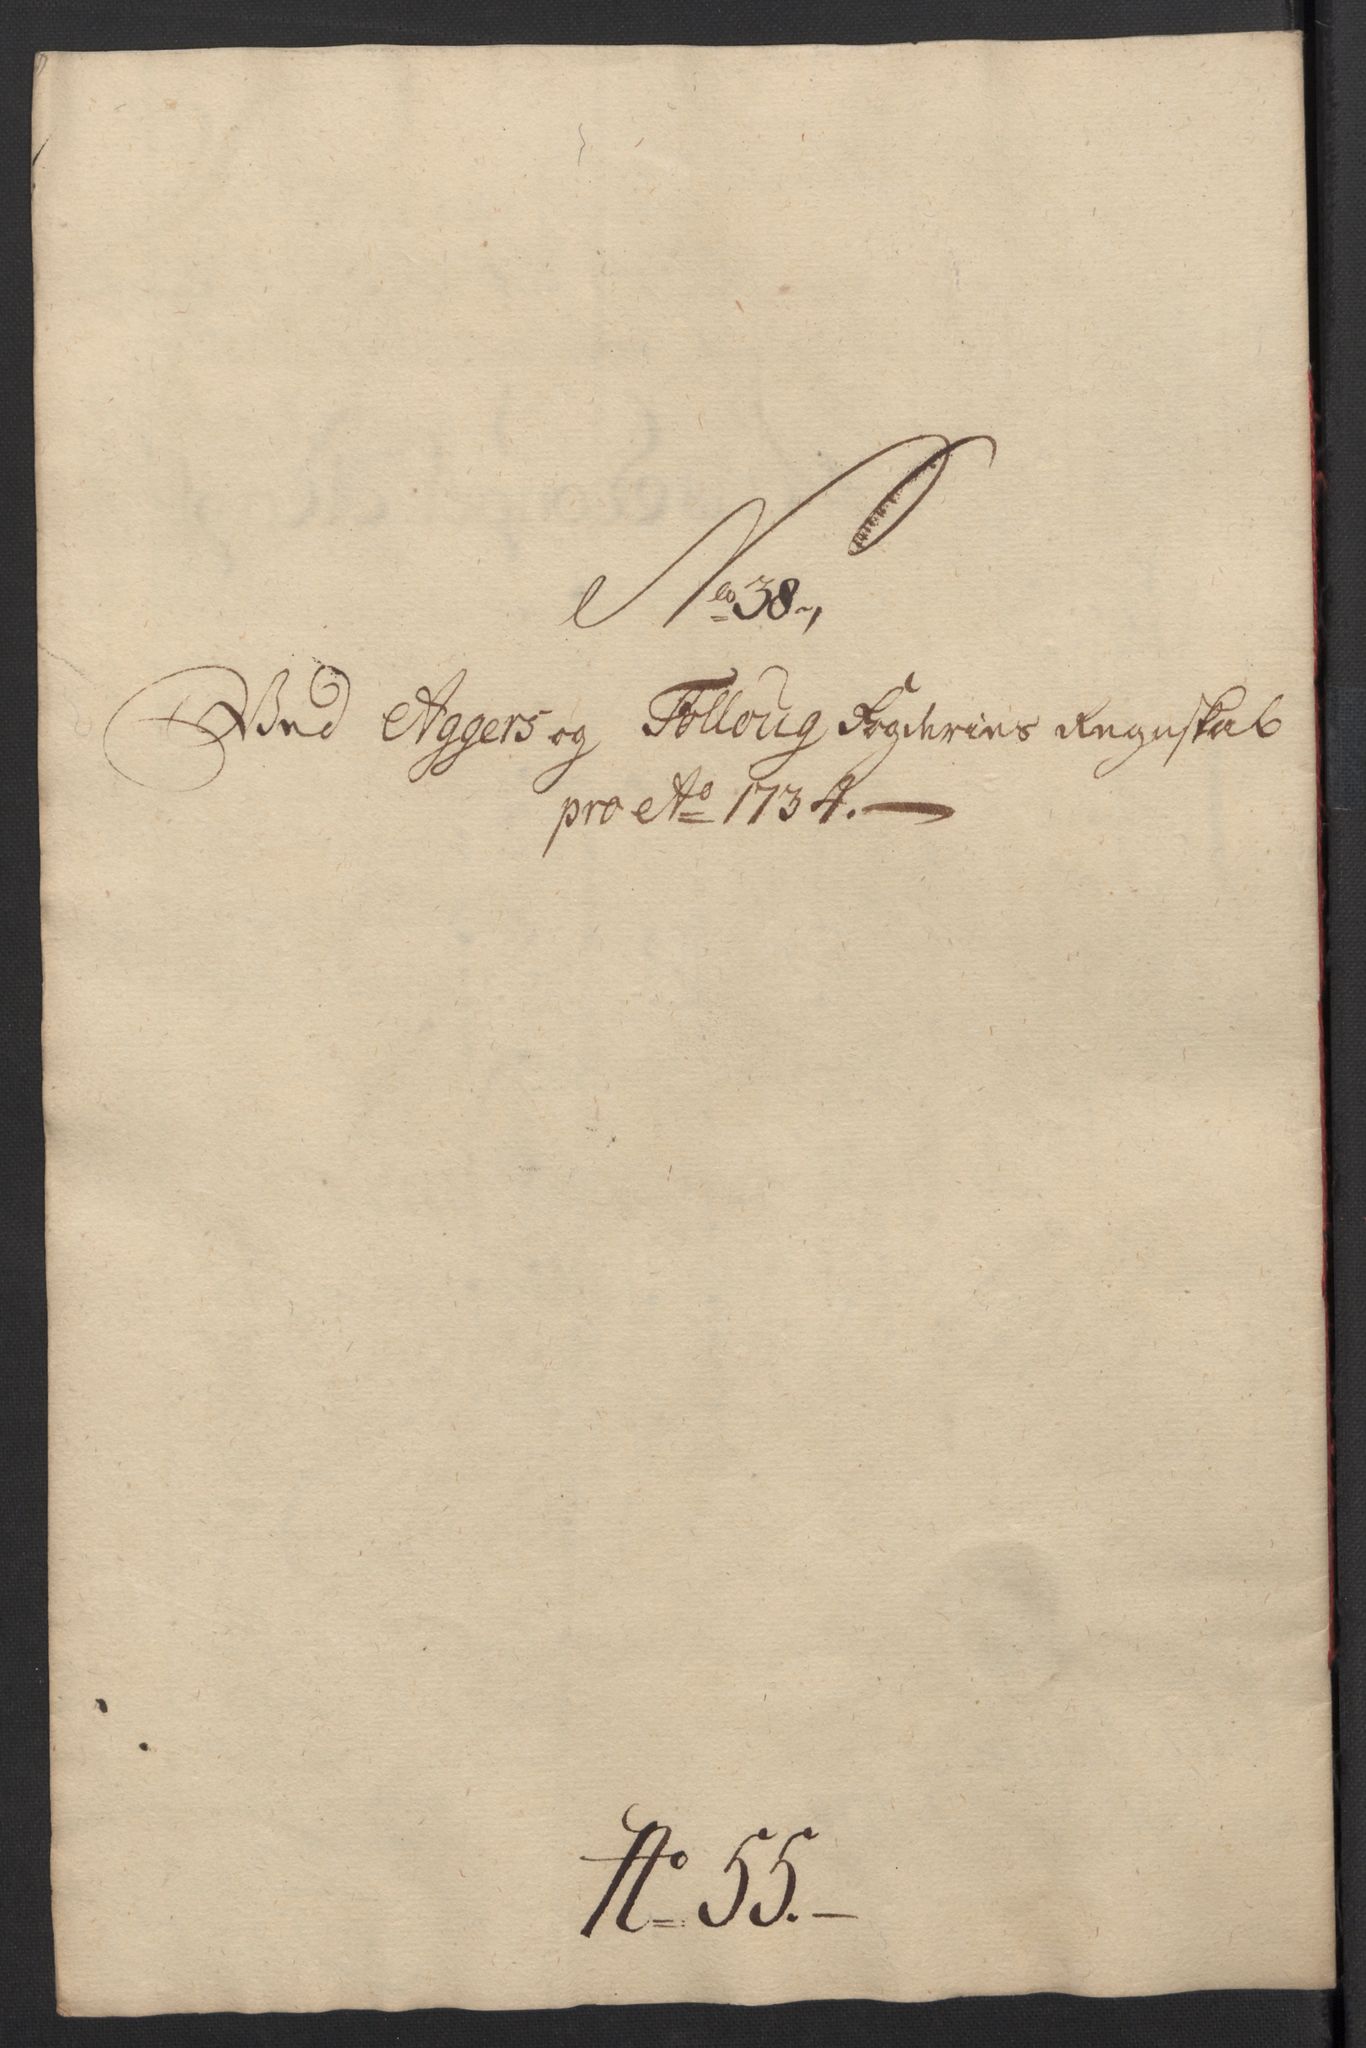 No 38.,
Ved Aggers og Folloug Fogderies Regnskab
pro Ao 1734.
No 55.